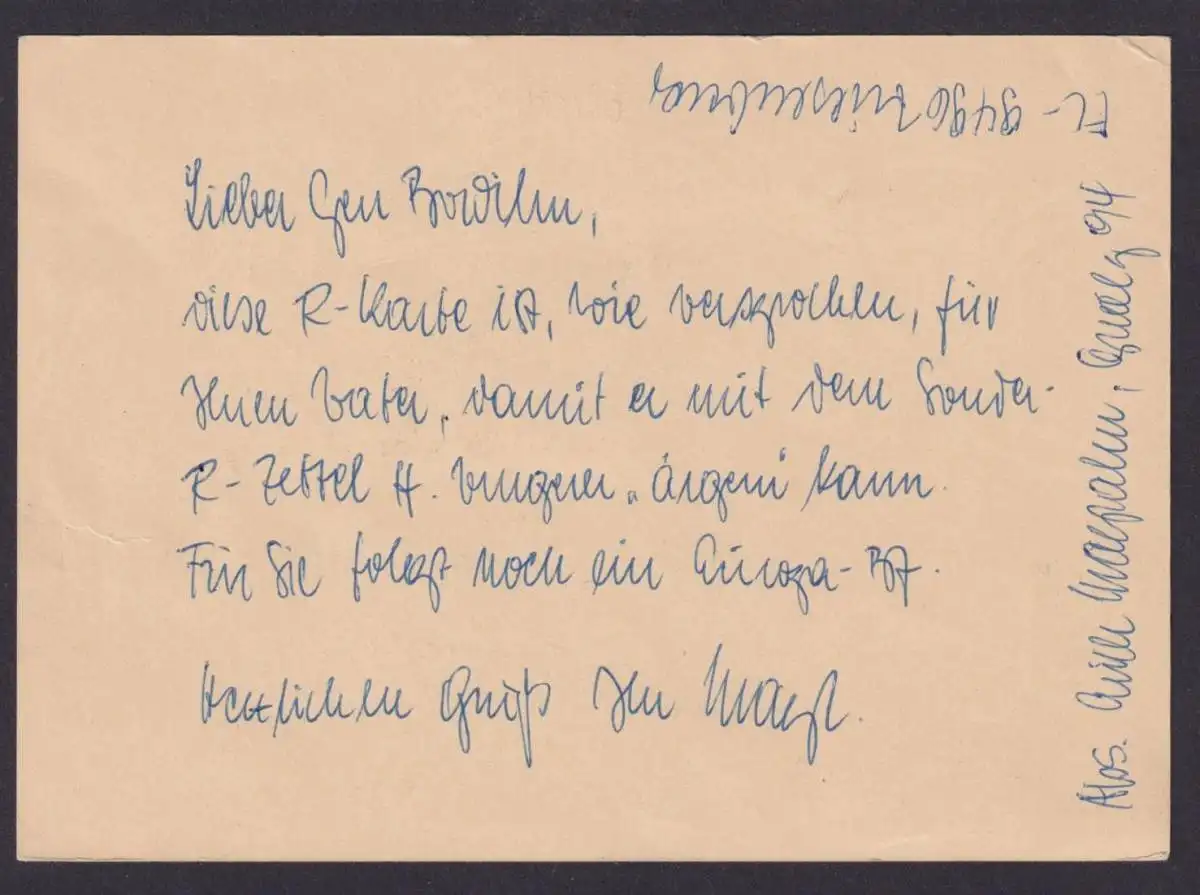 Lieber Herr
diese R-Karte ist, wie versprochen, für
Ihren Vater, damit er mit dem Sonder-
R-Zettel H. "ärgern" kann.
Für Sie folgt noch ein Europa-
Herzlichen Gruß Ihr
Abs. 94
FL-9490